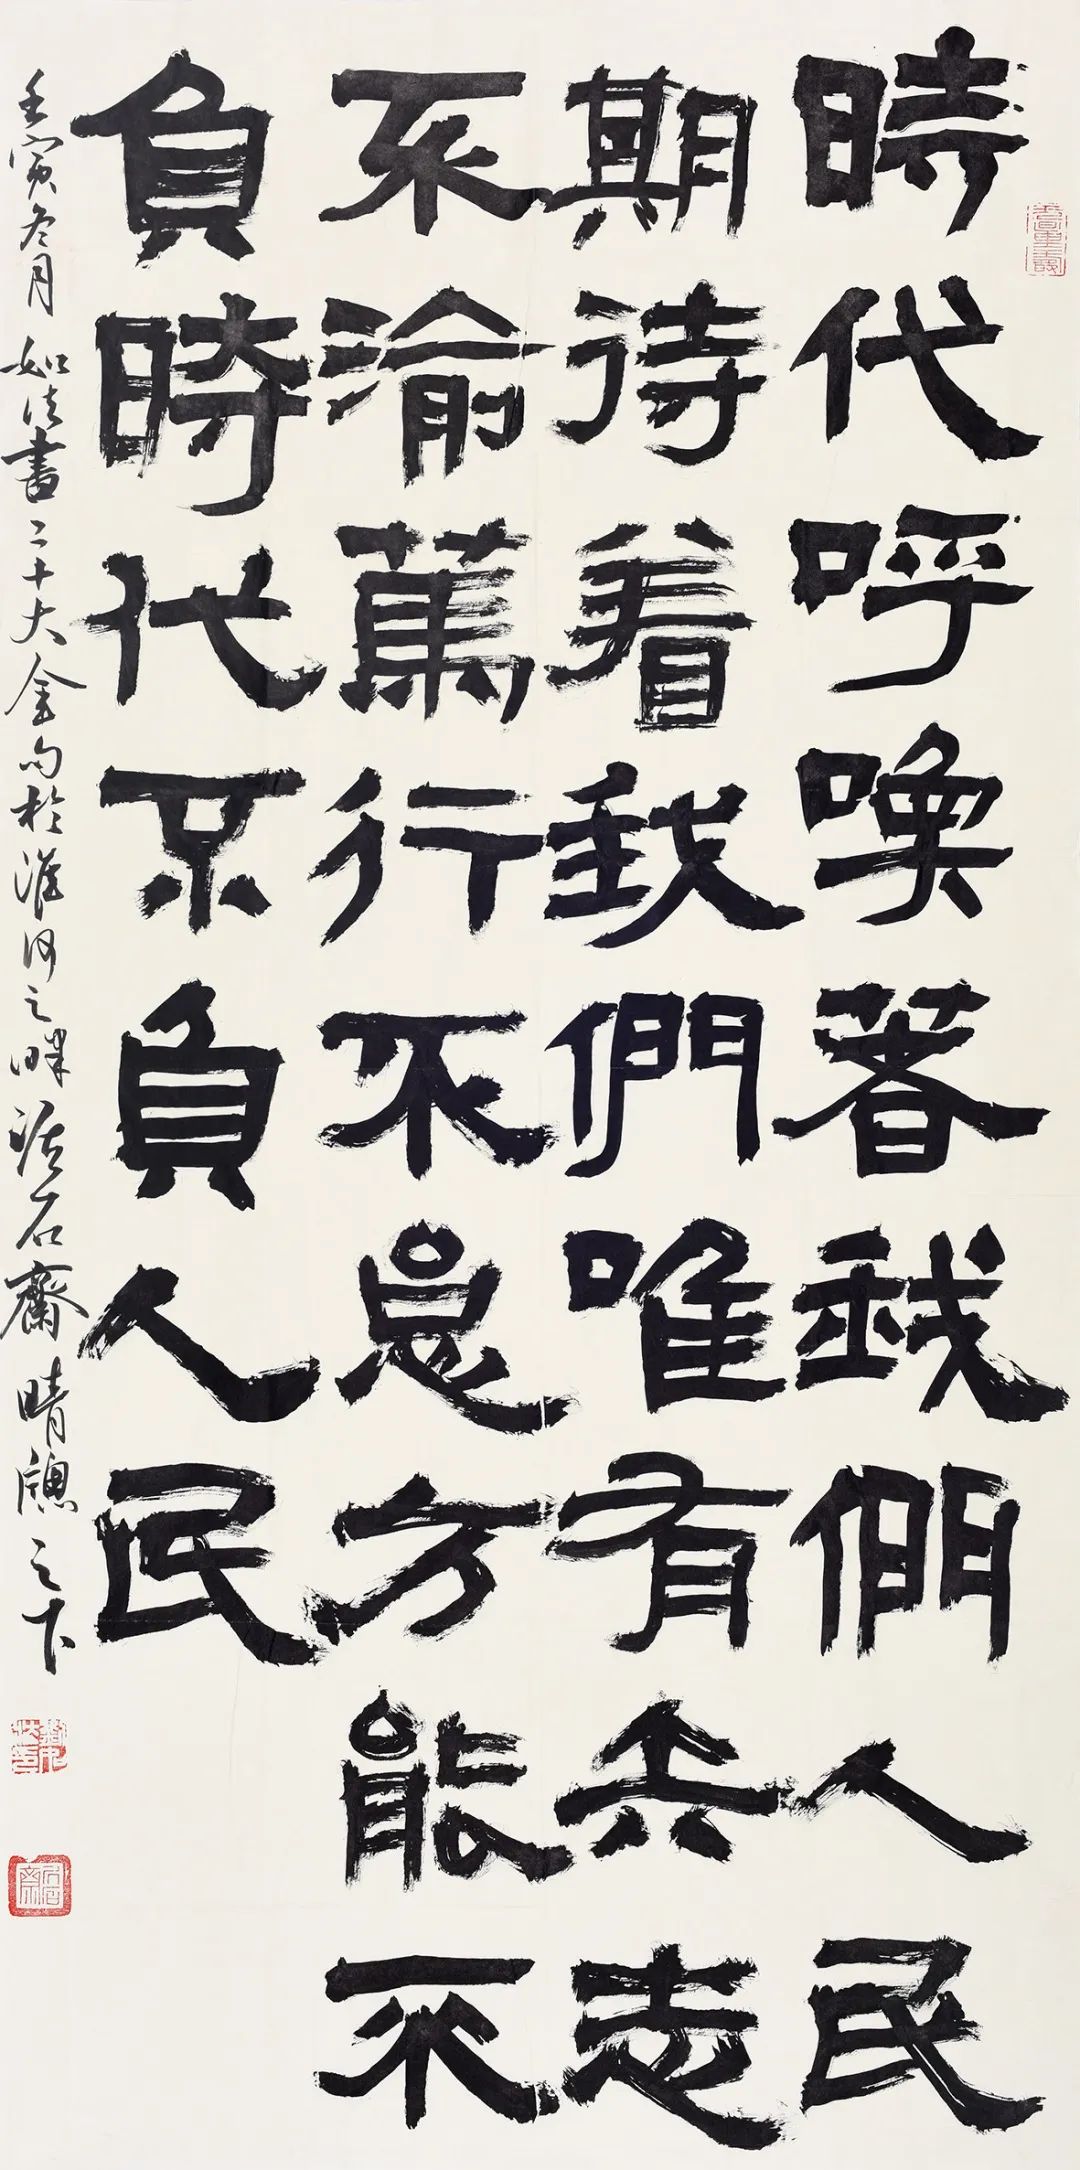 時代呼喚著我們人民
期待着我們唯有矢志
不渝篤行不怠方能不
負時代不負人民
壬寅冬月如書二十大金句於淮河之畔石齋晴牕之下